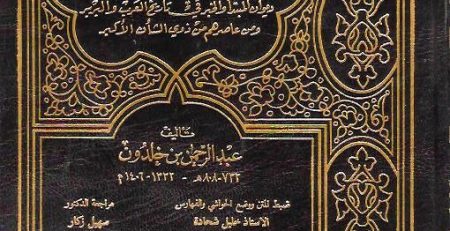 ديوان المبتدأ والخبر في تاريخ العرب والبربر
ومن عاصرهم من ذوي الشأن الأكبر
تأليف
عبد الرحمن بن خلدون
٧٣٢-٨٠٨هـ - ١٣٣٢-١٤٠٦م
ضبط المتن ووضع الحواشي والفهارس
الأستاذ خليل شحادة
مراجعة الدكتور
سهيل زكار